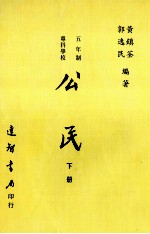 黃鎮荃
郭逸民
編著
五年制
專科學校
公民
下冊
達智書局
印行